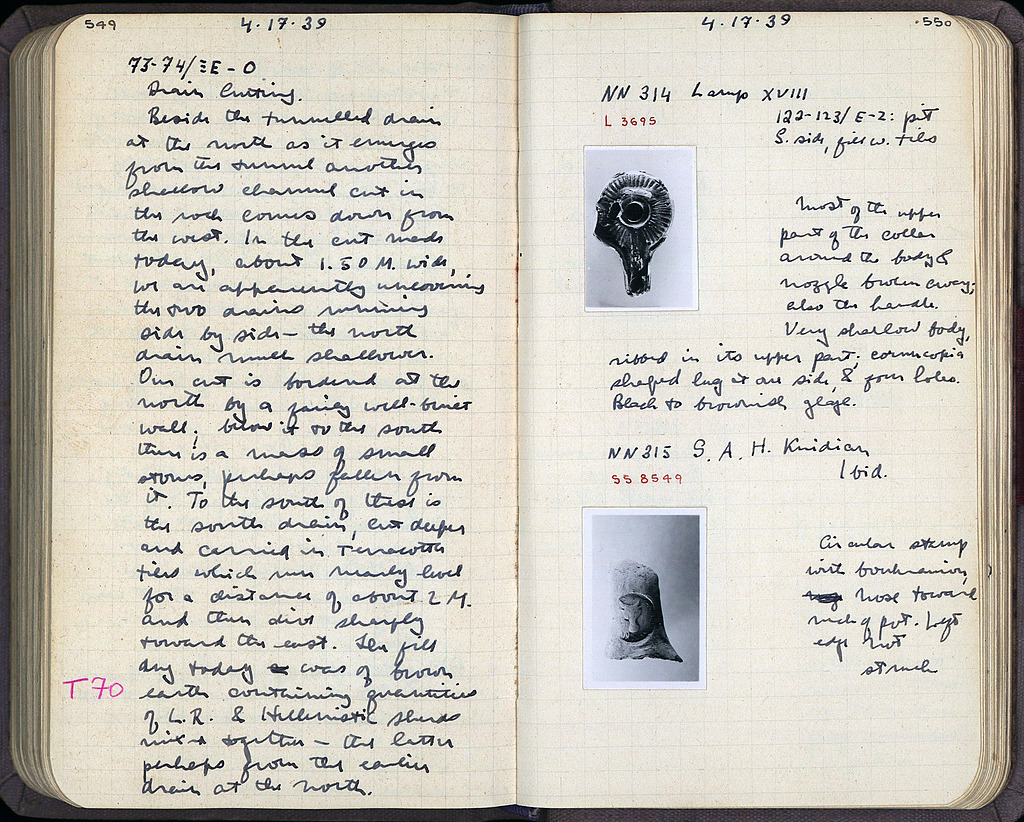 549
4·17·39
73-74/ΞE-O
Drain Cutting.
Beside the tunnelled drain
at the north as it emerges
from the tunnel another
shallow channel cut in
the rock comes down from
the west. In the cut made
today, about 1.50 M. wide,
we are apparently uncovering
the two drains running
side by side – the north
drain much shallower.
Our cut is bordered at the
north by a fairly well-built
wall; below it to the south
there is a mass of small
stones, perhaps fallen from
it. To the south of these is
the south drain, cut deeper
and carried in terracotta
tiles which run nearly level
for a distance of about 2 M.
and then dive sharply
toward the east. The fill
dug today was of brown
T 70
earth containing quantities
of L.R. & Hellenistic sherds
mixed together – the latter
perhaps from the earlier
drain at the north.
4·17·39
·550
NN 314 Lamp XVIII
L 3695
122-123/ E-Z: pit
S. side, fill w. tiles
Most of the upper
part of the collar
around the body &
nozzle broken away;
also the handle.
Very shallow body,
ribbed in its upper part; cornucopia
shaped lug at one side, & four holes.
Black to brownish glaze.
NN 315 S. A. H. Knidian
SS 8549
Ibid.
Circular stamp
with boukranion,
nose toward
neck of pot. Left
edge not
struck